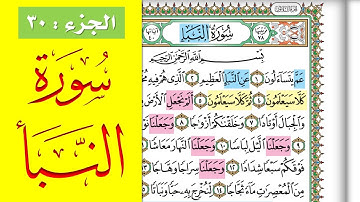 الجزء : ٣٠
سُورَة
النَّبَأ
سُورَةُ النَّبَإِ
بِسْمِ اللَّهِ الرَّحْمَٰنِ الرَّحِيمِ
عَمَّ يَتَسَاءَلُونَ ١ عَنِ النَّبَإِ الْعَظِيمِ ٢ الَّذِي هُمْ فِيهِ
كَلَّا سَيَعْلَمُونَ ٤ ثُمَّ كَلَّا سَيَعْلَمُونَ ٥ أَلَمْ نَجْعَلِ الْأَرْضَ
وَالْجِبَالَ أَوْتَادًا ٧ وَخَلَقْنَاكُمْ أَزْوَاجًا ٨ وَجَعَلْنَا
وَجَعَلْنَا الَّيْلَ لِبَاسًا ١٠ وَجَعَلْنَا النَّهَارَ مَعَاشًا
فَوْقَكُمْ سَبْعًا شِدَادًا ١٢ وَجَعَلْنَا سِرَاجًا وَهَّاجًا ١٣
مِنَ الْمُعْصِرَاتِ مَاءً ثَجَّاجًا ١٤ لِنُخْرِجَ بِهِ حَبًّا وَنَبَاتًا